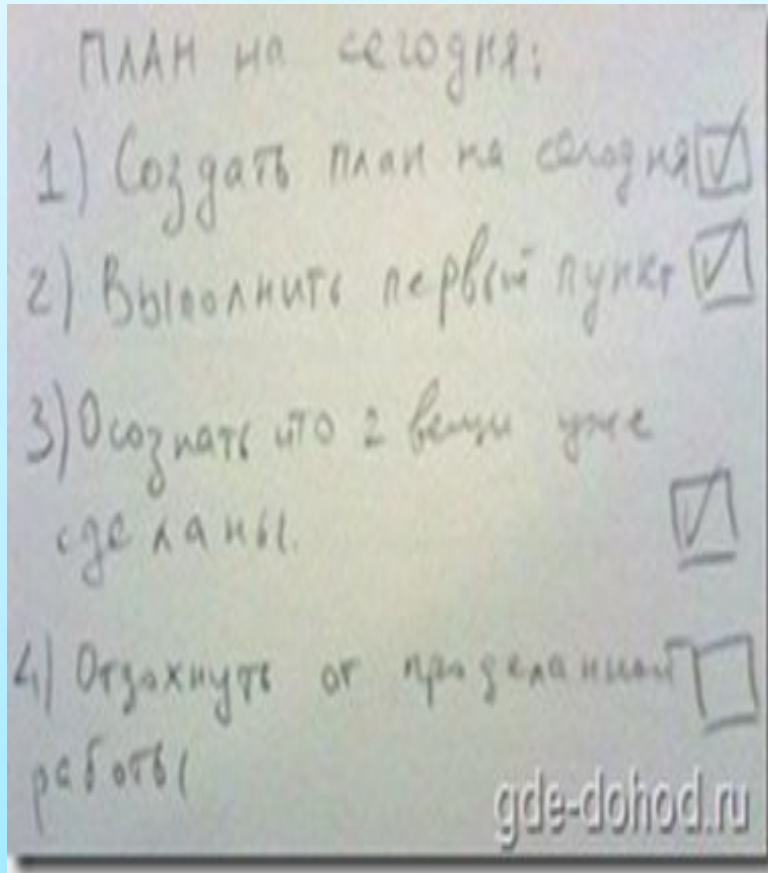 ПЛАН на сегодня:
1) Создать план на сегодня
2) Выполнить первый пункт
3) Осознать что 2 вещи уже
сделаны.
4) Отдохнуть от проделанной
работы
gde-dohod.ru